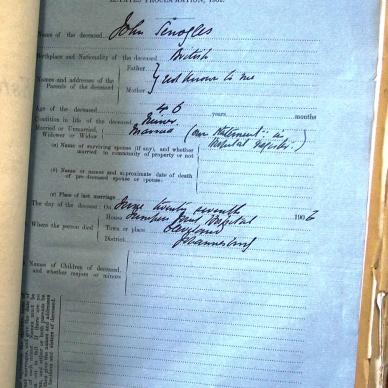 ESTATES PROCLAMATION, 1902.
Name of the deceased John Senogles
Birthplace and Nationality of the deceased British
Names and addresses of the Parents of the deceased
Father
Mother
Not known to me
Age of the deceased 46 years months
Condition in life of the deceased Miner
Married or Unmarried, Widower or Widow Married (own statement in Hospital Register)
(a) Name of surviving spouse (if any), and whether married in community of property or not
(b) Name or names and approximate date of death of pre-deceased spouse or spouses
(c) Place of last marriage
The day of the decease: On June twenty seventh 1906
Where the person died
House Simmer Jack Hospital
Town or place Cleveland
District Johannesburg
Names of Children of deceased, and whether majors or minors